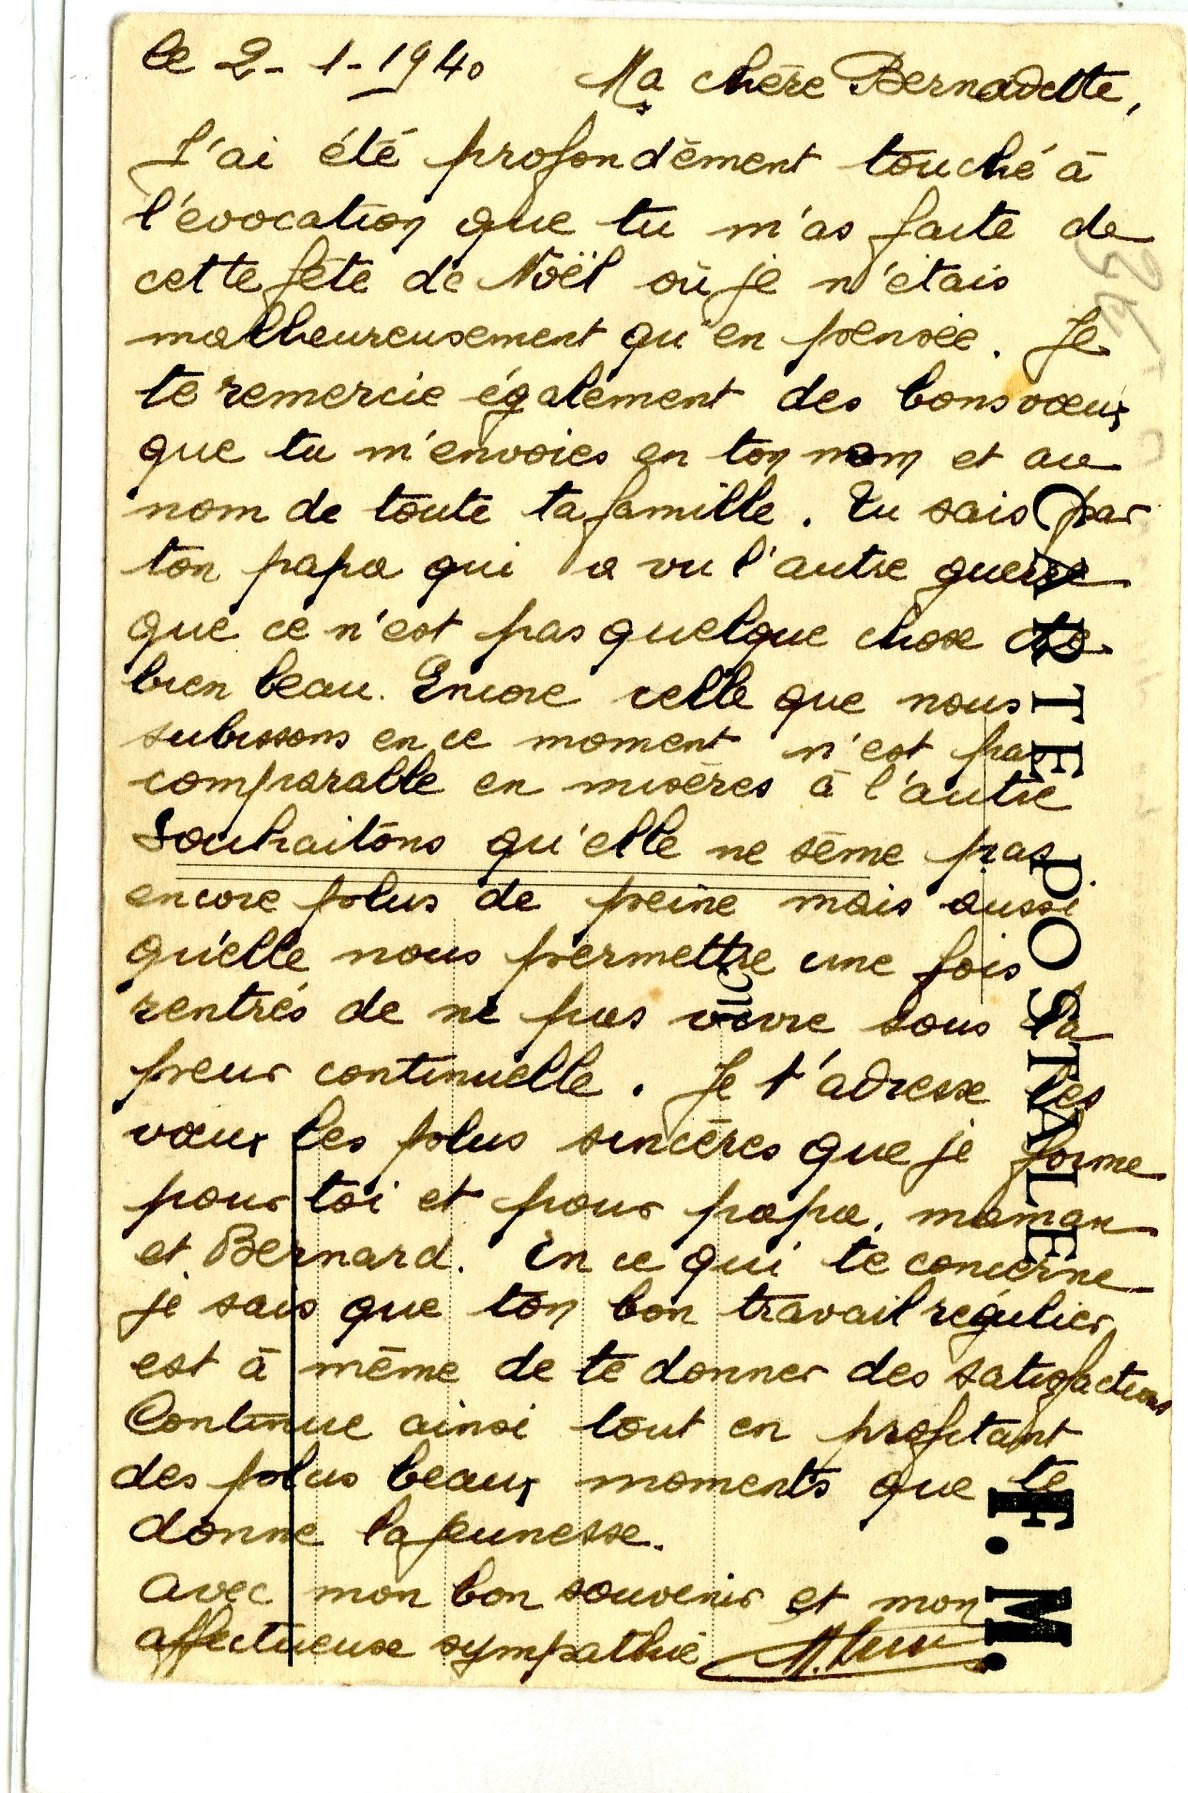 le 2-1-1940
Ma chère Bernadette,
J'ai été profondément touché à
l'évocation que tu m'as faite de
cette fête de Noël où je n'étais
malheureusement qu'en pensée. Je
te remercie également des bons vœux
que tu m'envoies en ton nom et au
nom de toute ta famille. Tu sais par
ton papa qui a vu l'autre guerre
que ce n'est pas quelque chose de
bien beau. Encore celle que nous
subissons en ce moment n'est pas
comparable en misères à l'autre
Souhaitons qu'elle ne sème pas
encore plus de peine mais aussi
qu'elle nous permettre une fois
rentrés de ne pas vivre sous la
peur continuelle. Je t'adresse les
vœux les plus sincères que je forme
pour toi et pour papa, maman
et Bernard. En ce qui te concerne
je sais que ton bon travail régulier
est à même de te donner des satisfactions
Continue ainsi tout en profitant
des plus beaux moments que te
donne la jeunesse.
avec mon bon souvenir et mon
affectueuse sympathie
CARTE POSTALE
F. M.